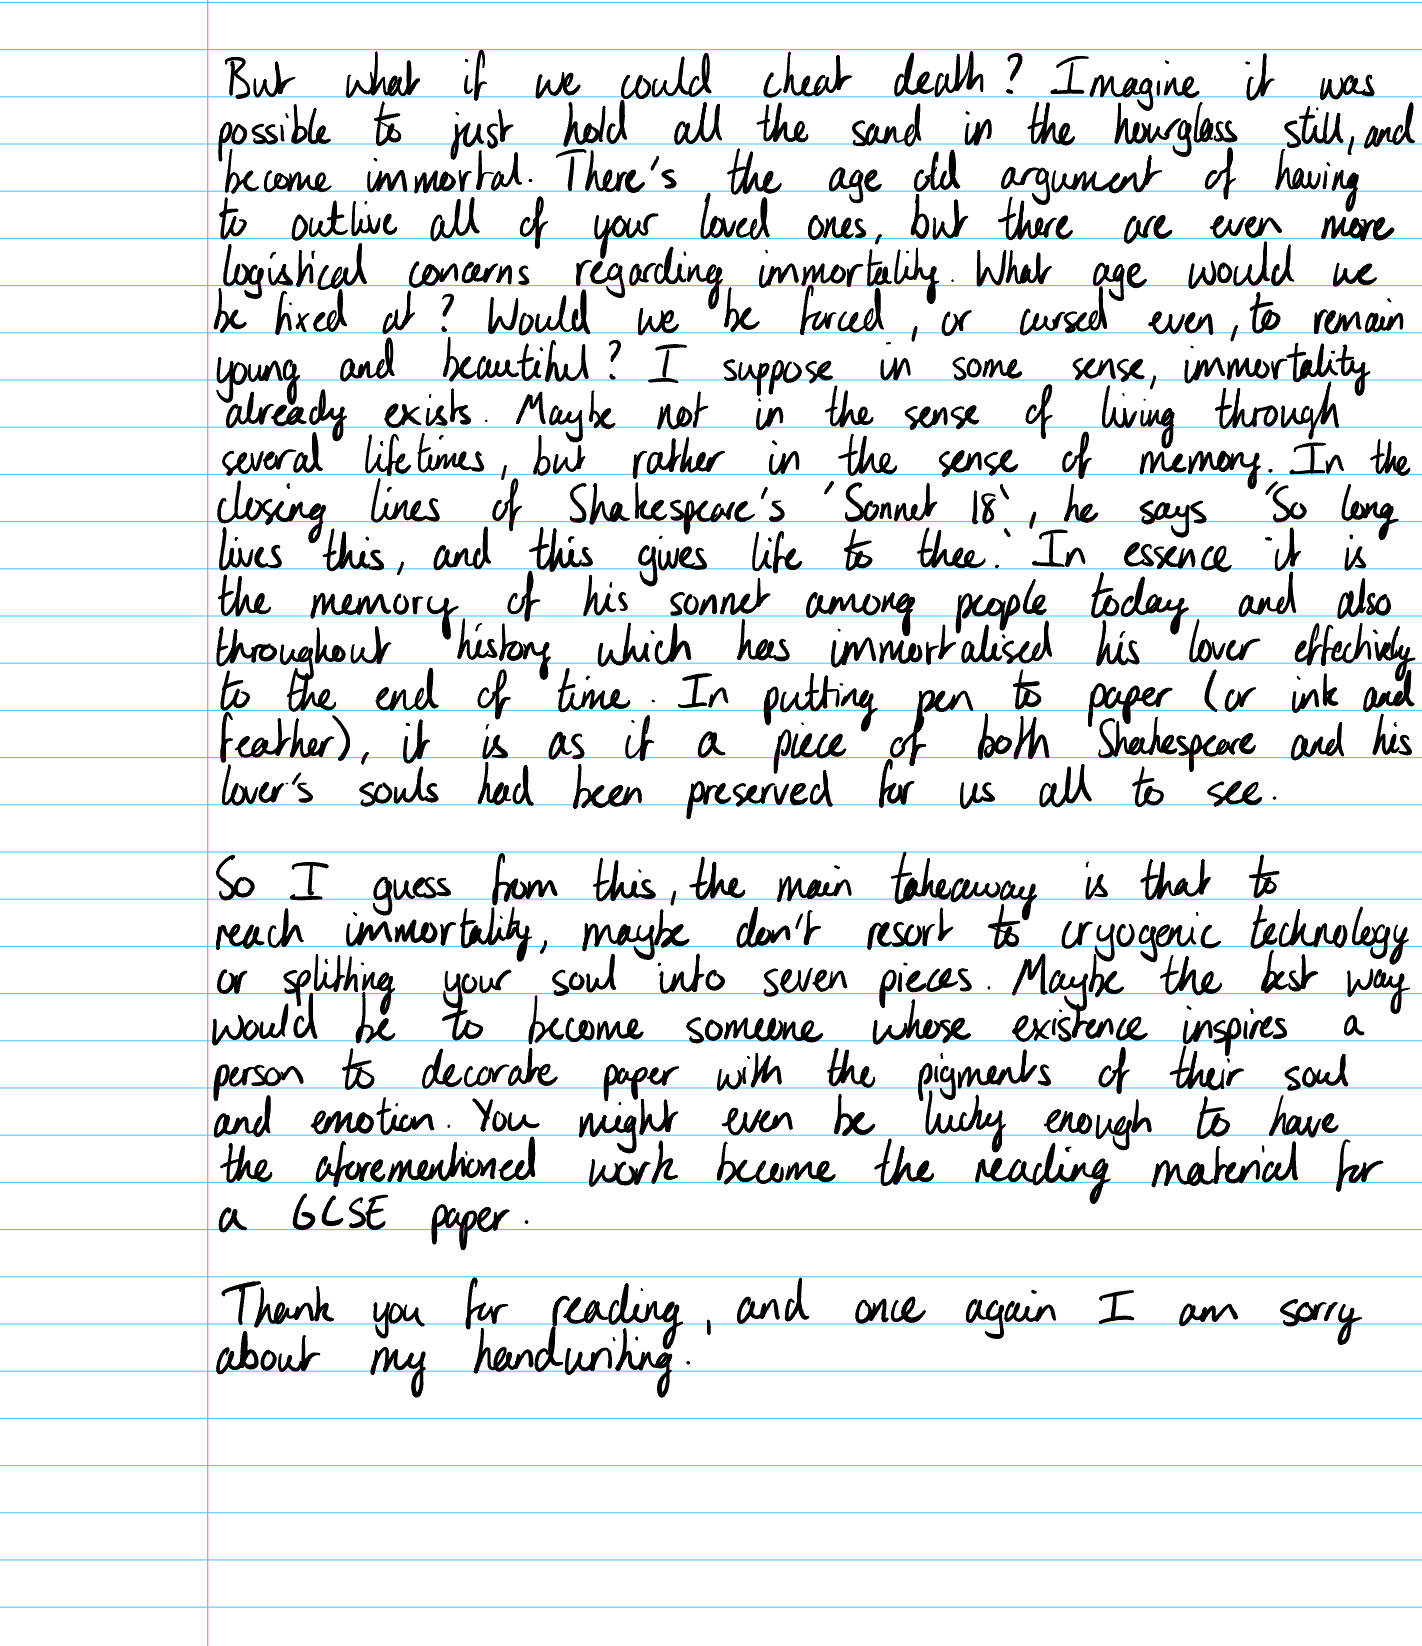 But what if we could cheat death? Imagine it was
possible to just hold all the sand in the hourglass still, and
become immortal. There's the age old argument of having
to outlive all of your loved ones, but there are even more
logistical concerns regarding immortality. What age would we
be fixed at? Would we be forced, or cursed even, to remain
young and beautiful? I suppose in some sense, immortality
already exists. Maybe not in the sense of living through
several lifetimes, but rather in the sense of memory. In the
closing lines of Shakespeare's 'Sonnet 18', he says 'So long
lives this, and this gives life to thee.' In essence it is
the memory of his sonnet among people today and also
throughout history which has immortalised his lover effectively
to the end of time. In putting pen to paper (or ink and
feather), it is as if a piece of both Shakespeare and his
lover's souls had been preserved for us all to see.
So I guess from this, the main takeaway is that to
reach immortality, maybe don't resort to cryogenic technology
or splitting your soul into seven pieces. Maybe the best way
would be to become someone whose existence inspires a
person to decorate paper with the pigments of their soul
and emotion. You might even be lucky enough to have
the aforementioned work become the reading material for
a GCSE paper.
Thank you for reading, and once again I am sorry
about my handwriting.